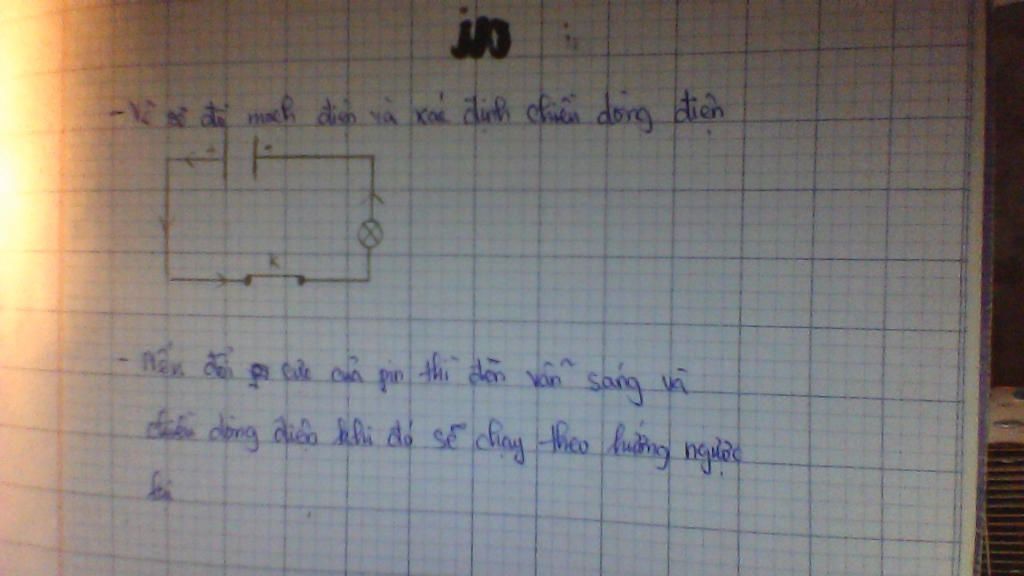 - Vẽ sơ đồ mạch điện và xác định chiều dòng điện
+ -
K
- Nếu đổi cực của pin thì đèn vẫn sáng và
chiều dòng điện khi đó sẽ chạy theo hướng ngược
lại